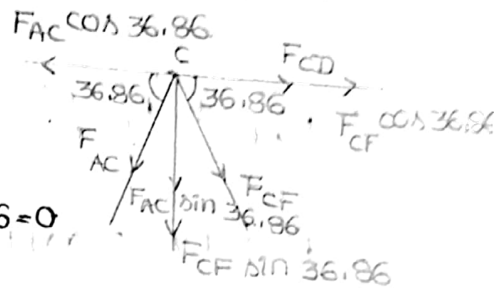 F_AC cos 36.86
C
F_CD
36.86 36.86
F_CF cos 36.86
F_AC
F_AC sin 36.86
F_CF
6=0
F_CF sin 36.86